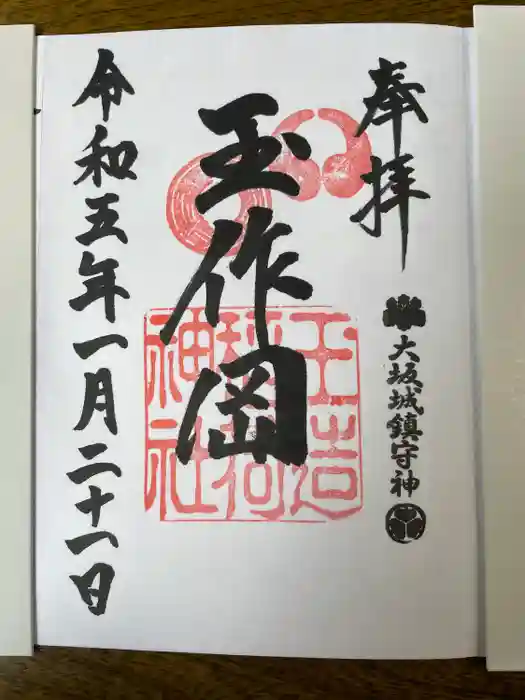 奉拝
大坂城鎮守神
玉作岡
玉造
稲荷
神社
令和五年一月二十一日